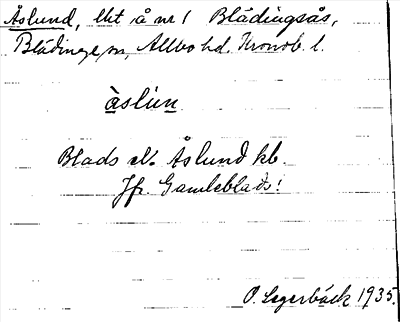 Åslund, lht å nr 1 Blädingsås,
Blädinge sn, Allbo hd. Kronob. l.
àslun
Blads el. Åslund kb.
Jfr. Gamleblads!
O. Lagerbäck 1935.